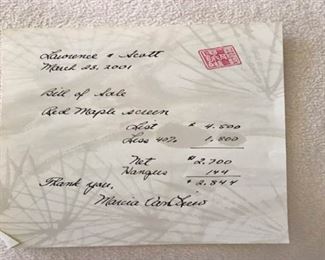 Lawrence & Scott
March 23, 2001
Bill of Sale
Red Maple screen
List $ 4,500
Less 40% 1,800
Net $ 2,700
Hangers 144
$ 2,844
Thank you,
Marcia Van